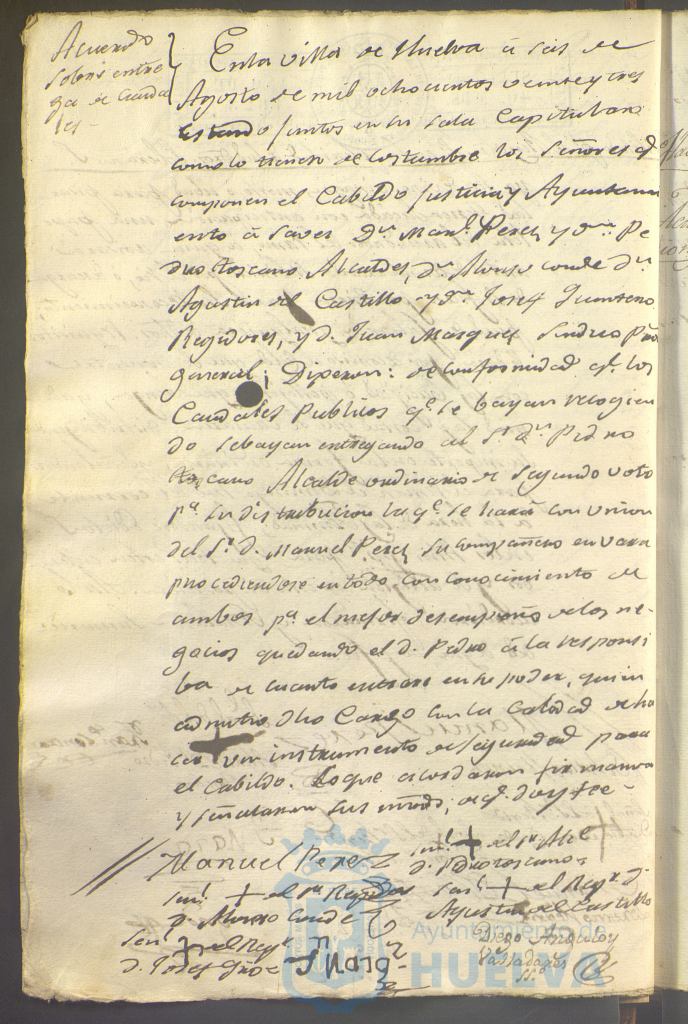 Acuerdo
sobre entre
ga de Cauda
les
En la villa de Huelva à seis de
Agosto de mil ochocientos veinte y tres
Estando juntos en su sala Capitular
como lo tienen de costumbre los Señores qe
componen el Cabildo Justicia y Ayuntami
ento à saver Dn Manl Perez y dn Pe
dro toscano Alcaldes, dn Alonso conde dn
Agustin del Castillo y dn Josef Quintero
Regidores, y d. Juan Marquez Sindico Pror
general; Dixeron: de conformidad qe los
Caudales Publicos qe se bayan recogien
do se bayan entregando al Sr dn Pedro
toscano Alcalde ordinario de segundo voto
pa su distribucion la qe se hará con union
del Sr d. Manuel Perez su compañero en vara
procediendose en todo con conocimiento de
ambos pa el mejor desempeño de los ne-
gocios quedando el d. Pedro à la responsi
va de cuanto entrare en su poder, quien
admitio dho Cargo con la Calidad de ha
cer un instrumento de seguridad para
el Cabildo. Lo que acordaron firmaron
y señalaron sus mrds, de qe doy fee-
Manuel Perez
señl + del sr Alce
d. Pedro toscano=
señl + del sr Regidor
d. Alonso Conde
señl + del Regr d.
Agustin del Castillo
señl + del Regr
d. Josef Qro
Diego
Valladares
Ayuntamiento de
HUELVA